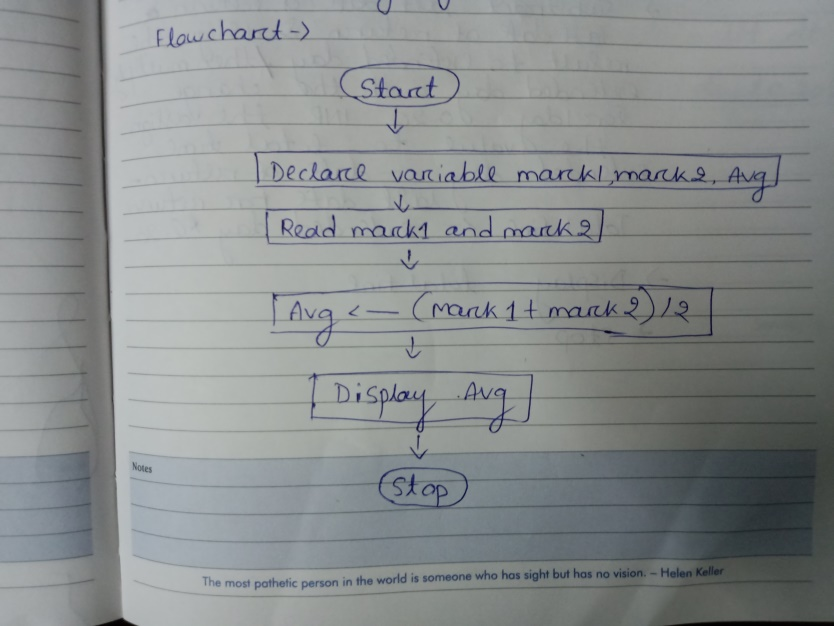 Flowchart →
Start
Declare variable mark1, mark2, Avg
Read mark1 and mark2
Avg <— (mark1 + mark2)/2
Display Avg
Stop
Notes
The most pathetic person in the world is someone who has sight but has no vision. – Helen Keller